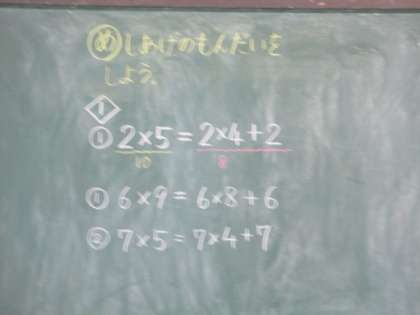 め しあげのもんだいを
しよう。
1
2×5=2×4+2
10 8
① 6×9=6×8+6
② 7×5=7×4+7